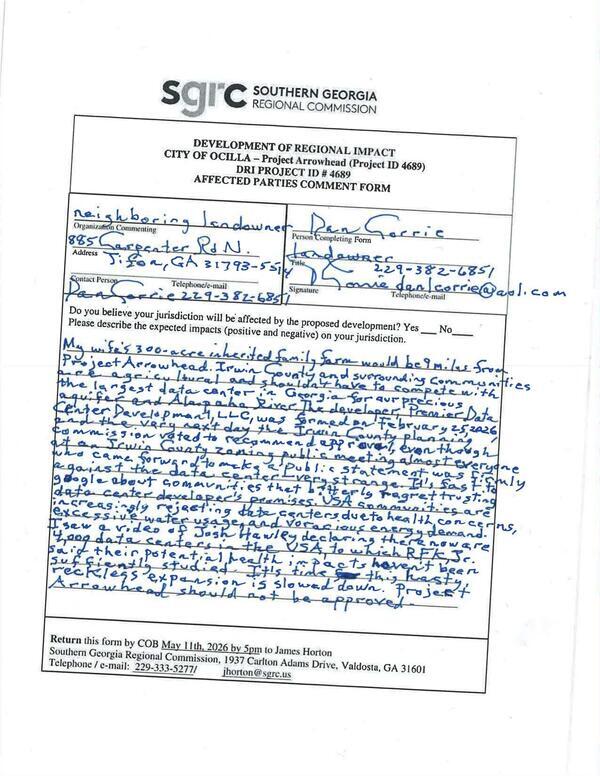 sgrc SOUTHERN GEORGIA
REGIONAL COMMISSION
DEVELOPMENT OF REGIONAL IMPACT
CITY OF OCILLA – Project Arrowhead (Project ID 4689)
DRI PROJECT ID # 4689
AFFECTED PARTIES COMMENT FORM
neighboring landowner
Organization Commenting
885 Carpenter Rd N.
Address
Tifton, GA 31793-5514
Contact Person Telephone/e-mail
Dan Corrie 229-382-6851
Dan Corrie
Person Completing Form
landowner
Title
229-382-6851
Signature Telephone/e-mail
danlcorrie@aol.com
Do you believe your jurisdiction will be affected by the proposed development? Yes ___ No ___
Please describe the expected impacts (positive and negative) on your jurisdiction.
My wife's 300-acre inherited family farm would be 9 miles from
Project Arrowhead. Irwin County and surrounding communities
are agricultural and shouldn't have to compete with
the largest data center in Georgia for our precious
aquifer and Alapaha River. The developer, Premier Data
Center Development, LLC, was formed on February 25, 2026,
and the very next day the Irwin County planning
commission voted to recommend approval, even though
at an Irwin County zoning public meeting almost everyone
who came forward to make a public statement was firmly
against the data center. Very strange. It's easy to
google about communities that bitterly regret trusting
data center developer's promises. USA communities are
increasingly rejecting data centers due to health concerns,
excessive water usage, and voracious energy demand.
I saw a video of Josh Hawley declaring there now are
4,000 data centers in the USA, to which RFK, Jr.
said their potential health impacts haven't been
sufficiently studied. It's time this hasty,
reckless expansion is slowed down. Project
Arrowhead should not be approved.
Return this form by COB May 11th, 2026 by 5pm to James Horton
Southern Georgia Regional Commission, 1937 Carlton Adams Drive, Valdosta, GA 31601
Telephone / e-mail: 229-333-5277/ jhorton@sgrc.us